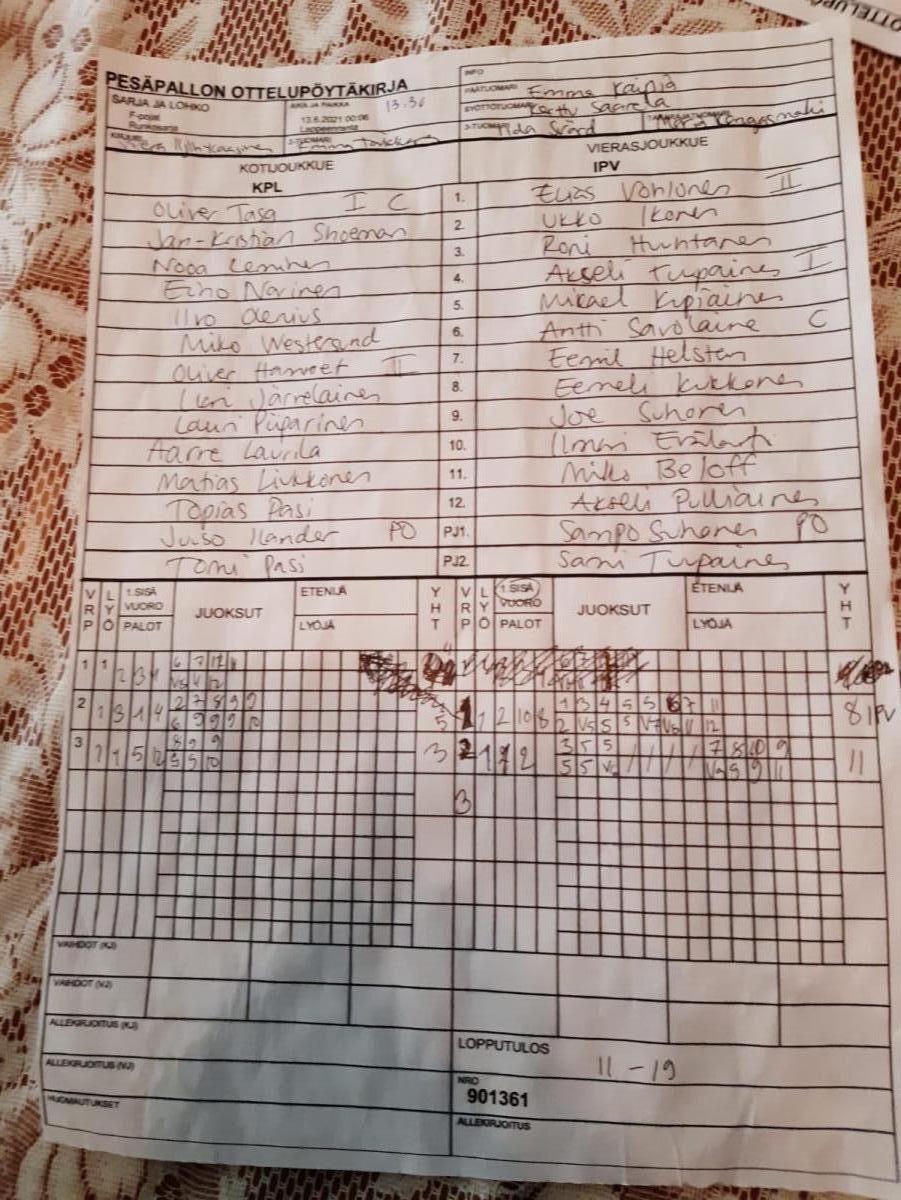 OTTELUPO
PESÄPALLON OTTELUPÖYTÄKIRJA
INFO
SARJA JA LOHKO
F-pojat
Runkosarja
AIKA JA PAIKKA 13.30
13.6.2021 00:06
Lappeenranta
PÄÄTUOMARI Emma Kaipia
SYÖTTÖTUOMARI Kerttu Saarela
3-TUOMARI Iida Svärd
KIRJURI
2-TUOMARI Emma
KOTIJOUKKUE
KPL
VIERASJOUKKUE
IPV
Oliver Tasa I C 1. Elias Vohlonen II
Jan-Kristian Shoeman 2. Ukko Ikonen
Nooa Leminen 3. Roni Huhtanen
Eino Narinen 4. Akseli Tupainen I
Ilvo Genius 5. Mikael Kipiainen
Miko Westerund 6. Antti Savolaine C
Oliver II 7. Eemil Helsten
Järveläinen 8. Eemeli Kukkonen
Lauri Piiparinen 9. Joe Suhonen
Aarre Laurila 10. Ilmari
Matias Liukkonen 11. Miko Beloff
Topias Pasi 12. Akseli Pulliainen
Juuso Ilander PO PJ1. Sampo Suhonen PO
Tomi Pasi PJ2. Sami Tupaine
VRP LYÖ 1.SISÄ VUORO PALOT JUOKSUT ETENIJÄ LYÖJÄ YHT VRP LYÖ 1.SISÄ VUORO PALOT JUOKSUT ETENIJÄ LYÖJÄ YHT
1 1 2 3 4
2 1 3 1 4 2 7 8 9 9 5 1 1 2 10 8 1 3 4 5 5 6 7 11 8 IPV
6 9 9 9 10 2 V5 5 5 V7 V6 11 12
3 1 1 5 12 8 9 9 3 2 1 7 2 3 5 5 / / / / 7 8 10 9 11
9 9 10 5 5 V6 8 9 11
3
VAIHDOT (KJ)
VAIHDOT (VJ)
ALLEKIRJOITUS (KJ)
ALLEKIRJOITUS (VJ)
HUOMAUTUKSET
LOPPUTULOS
11 - 19
NRO
901361
ALLEKIRJOITUS